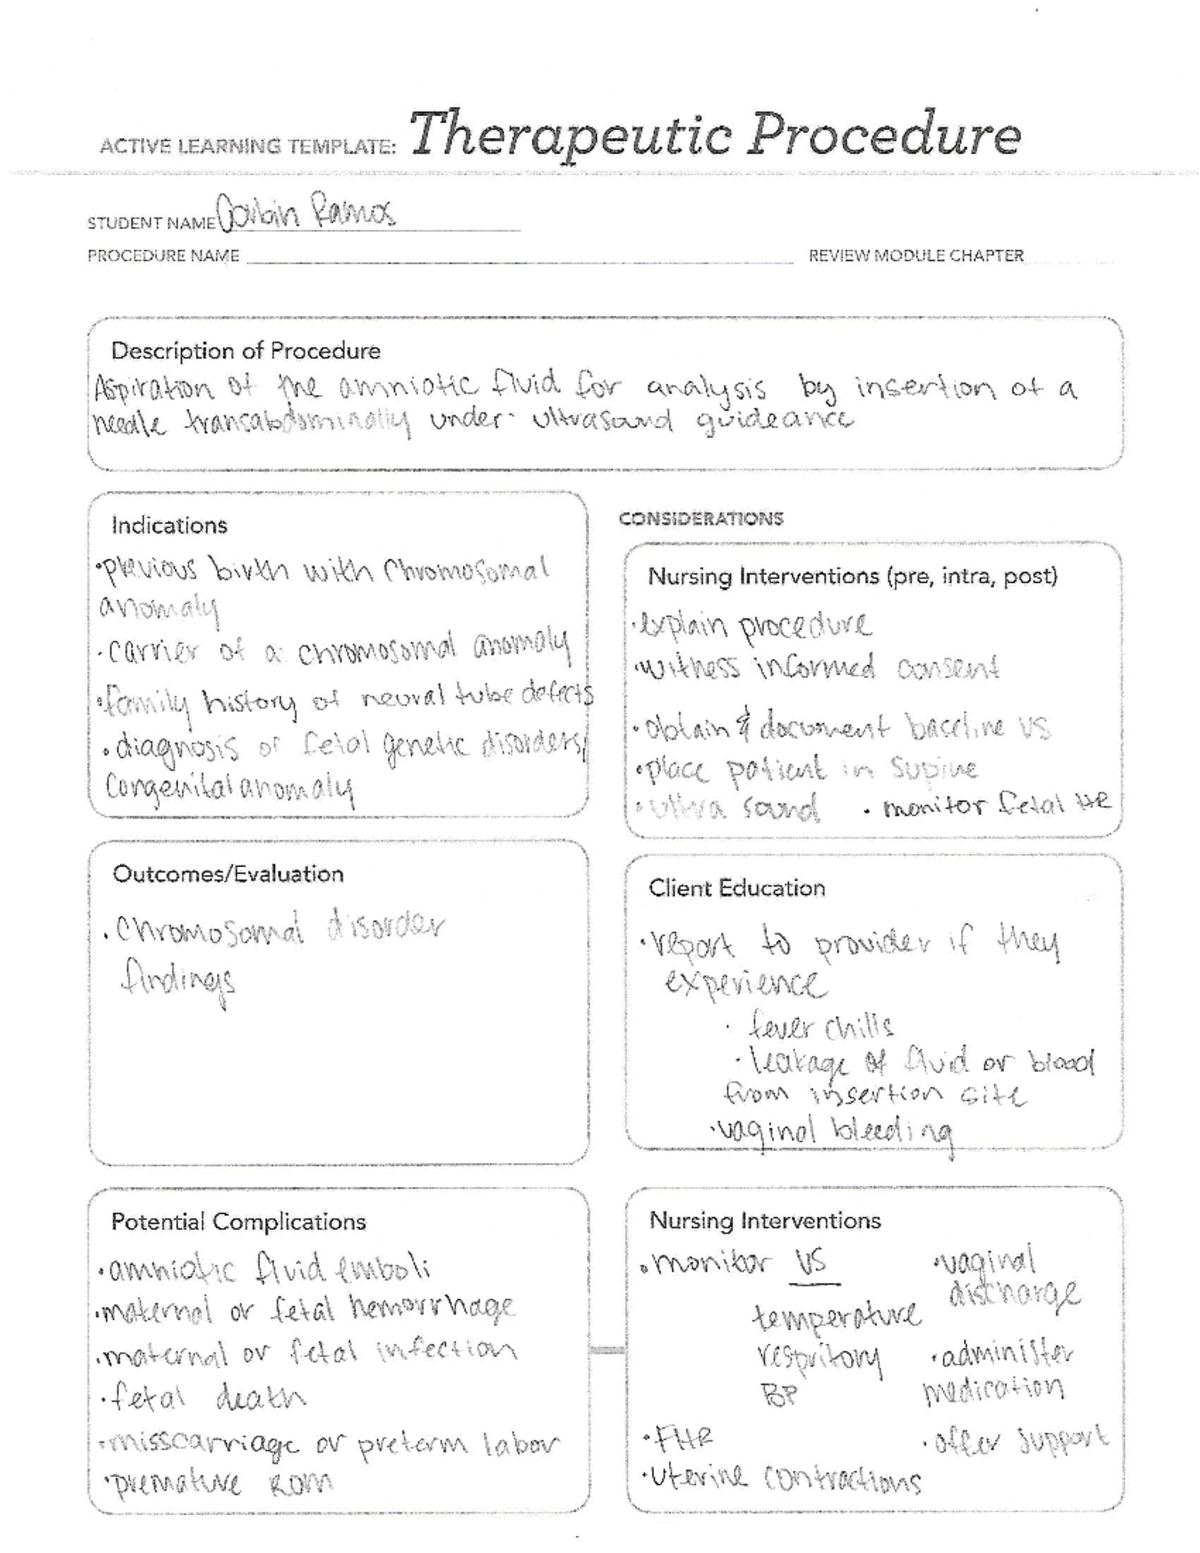 ACTIVE LEARNING TEMPLATE: Therapeutic Procedure
STUDENT NAME Corbin Ramos
PROCEDURE NAME
REVIEW MODULE CHAPTER
Description of Procedure
Aspiration of the amniotic fluid for analysis by insertion of a
needle transabdominally under ultrasound guideance
Indications
•previous birth with chromosomal
anomaly
•carrier of a chromosomal anomaly
•family history of neural tube defects
•diagnosis of fetal genetic disorders/
congenital anomaly
CONSIDERATIONS
Nursing Interventions (pre, intra, post)
•explain procedure
•witness informed consent
•obtain & document baseline VS
•place patient in supine
•ultra sound •monitor fetal HR
Outcomes/Evaluation
•chromosomal disorder
findings
Client Education
•report to provider if they
experience
•fever chills
•leakage of fluid or blood
from insertion site
•vaginal bleeding
Potential Complications
•amniotic fluid emboli
•maternal or fetal hemorrhage
•maternal or fetal infection
•fetal death
•misscarriage or preterm labor
•premature ROM
Nursing Interventions
•monitor VS
temperature
respritory
BP
•FHR
•uterine contractions
•vaginal
discharge
•administer
medication
•offer support